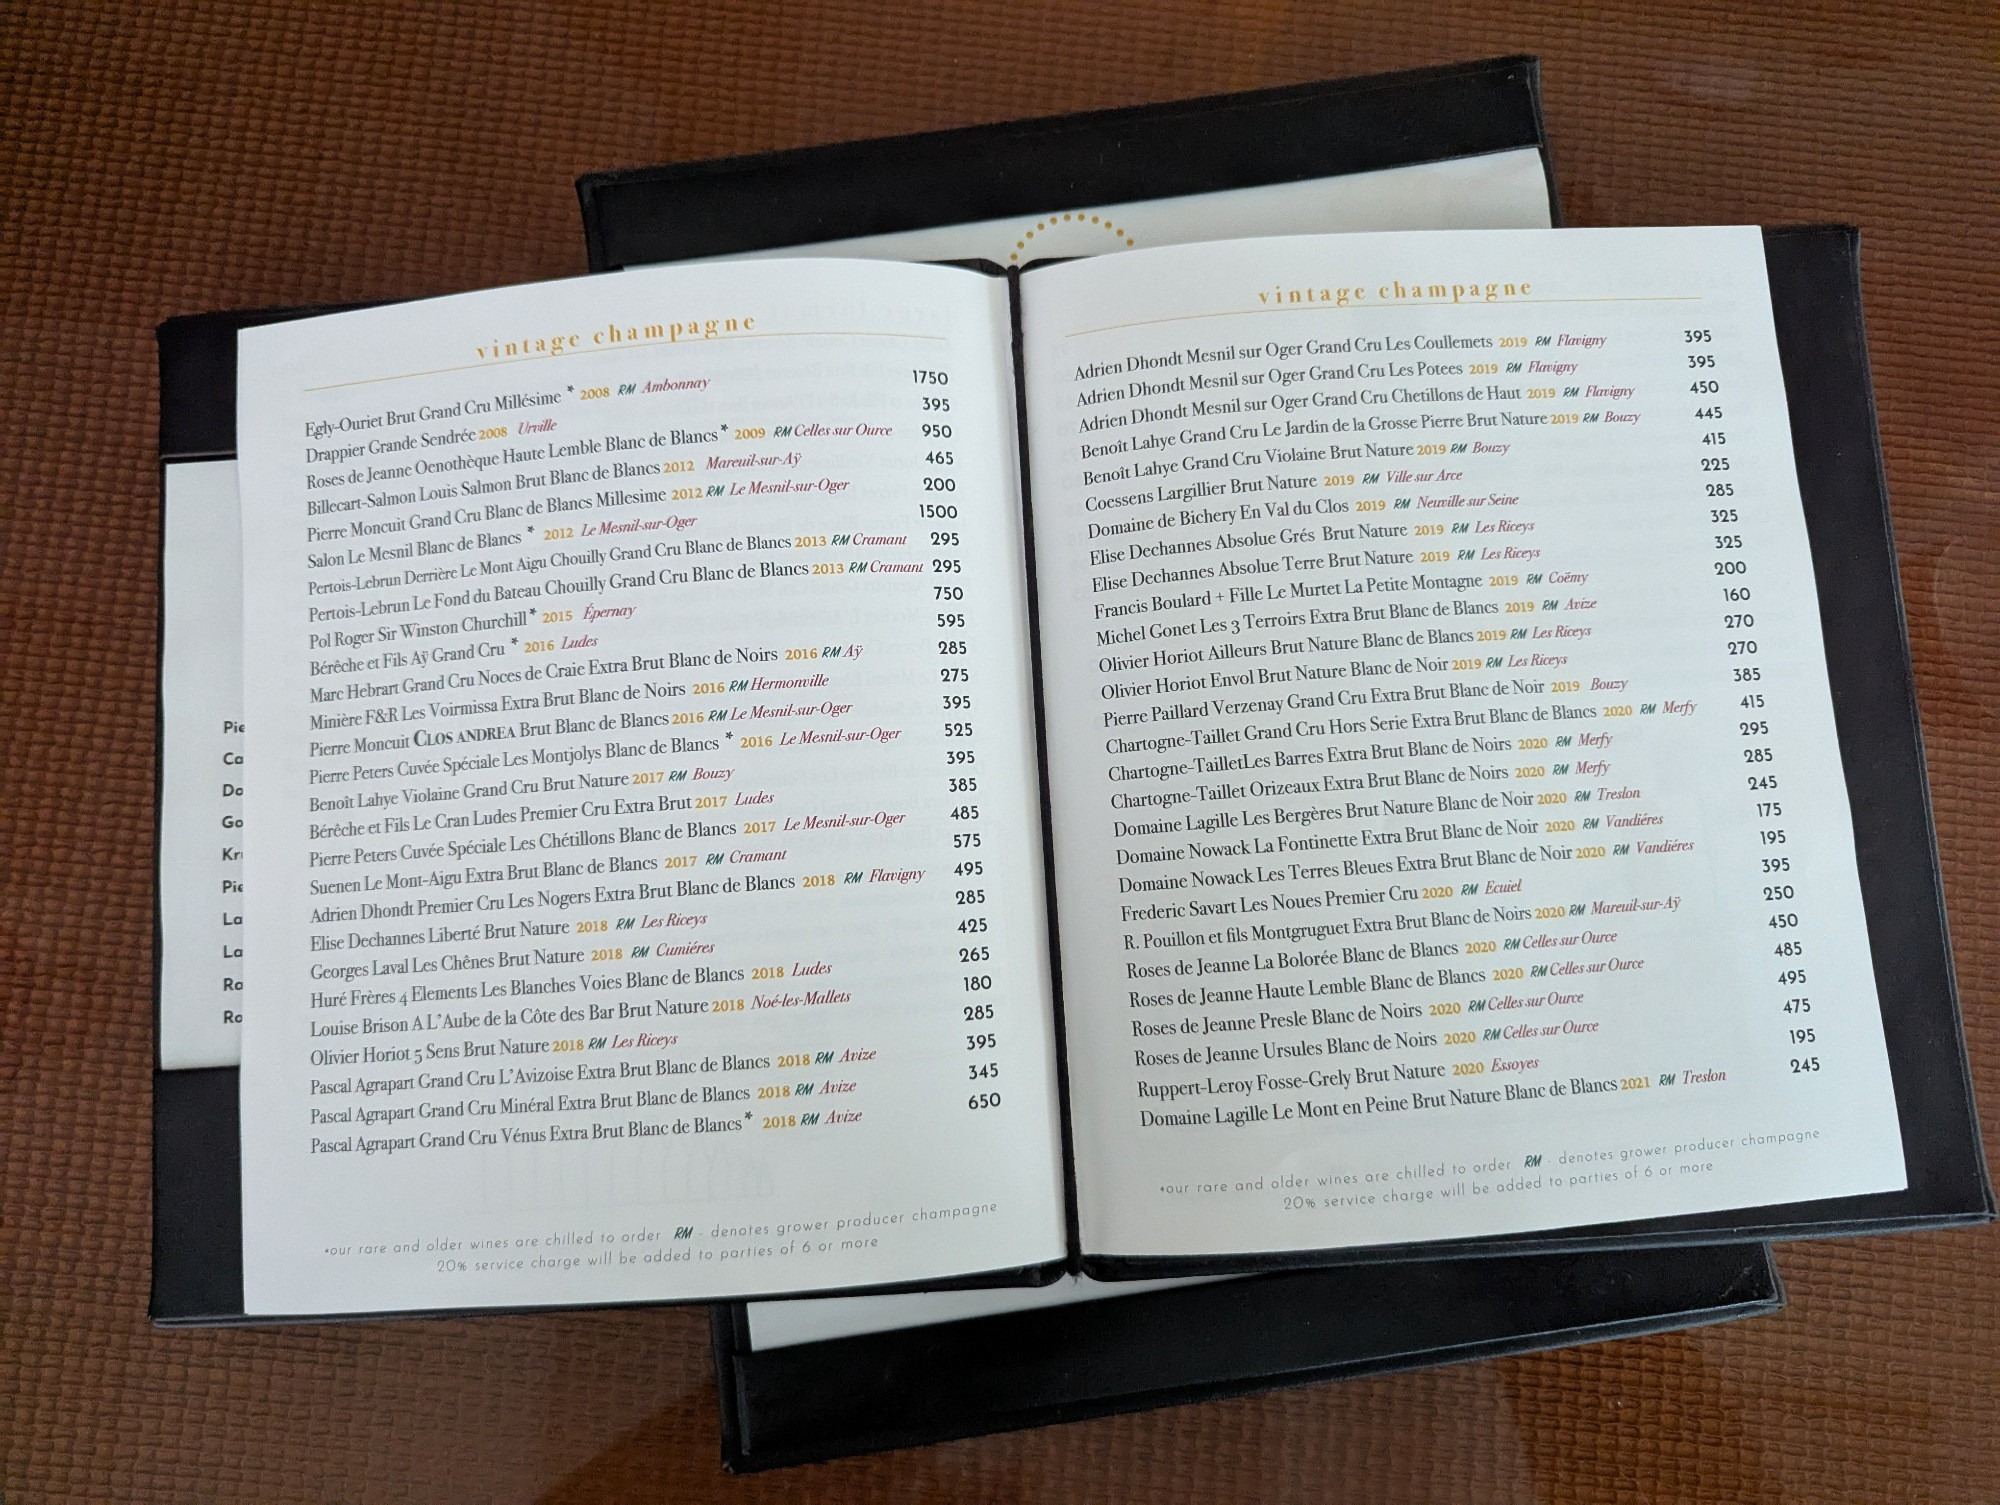 vintage champagne
Egly-Ouriet Brut Grand Cru Millésime * 2008 RM Ambonnay 1750
Drappier Grande Sendrée 2008 Urville 395
Roses de Jeanne Oenothèque Haute Lemble Blanc de Blancs * 2009 RM Celles sur Ource 950
Billecart-Salmon Louis Salmon Brut Blanc de Blancs 2012 Mareuil-sur-Aÿ 465
Pierre Moncuit Grand Cru Blanc de Blancs Millesime 2012 RM Le Mesnil-sur-Oger 200
Salon Le Mesnil Blanc de Blancs * 2012 Le Mesnil-sur-Oger 1500
Pertois-Lebrun Derrière Le Mont Aigu Chouilly Grand Cru Blanc de Blancs 2013 RM Cramant 295
Pertois-Lebrun Le Fond du Bateau Chouilly Grand Cru Blanc de Blancs 2013 RM Cramant 295
Pol Roger Sir Winston Churchill * 2015 Épernay 750
Bérêche et Fils Aÿ Grand Cru * 2016 Ludes 595
Marc Hebrart Grand Cru Noces de Craie Extra Brut Blanc de Noirs 2016 RM Aÿ 285
Minière F&R Les Voirmissa Extra Brut Blanc de Noirs 2016 RM Hermonville 275
Pierre Moncuit CLOS ANDREA Brut Blanc de Blancs 2016 RM Le Mesnil-sur-Oger 395
Pierre Peters Cuvée Spéciale Les Montjolys Blanc de Blancs * 2016 Le Mesnil-sur-Oger 525
Benoît Lahye Violaine Grand Cru Brut Nature 2017 RM Bouzy 395
Bérêche et Fils Le Cran Ludes Premier Cru Extra Brut 2017 Ludes 385
Pierre Peters Cuvée Spéciale Les Chétillons Blanc de Blancs 2017 Le Mesnil-sur-Oger 485
Suenen Le Mont-Aigu Extra Brut Blanc de Blancs 2017 RM Cramant 575
Adrien Dhondt Premier Cru Les Nogers Extra Brut Blanc de Blancs 2018 RM Flavigny 495
Elise Dechannes Liberté Brut Nature 2018 RM Les Riceys 285
Georges Laval Les Chênes Brut Nature 2018 RM Cumiéres 425
Huré Frères 4 Elements Les Blanches Voies Blanc de Blancs 2018 Ludes 265
Louise Brison A L'Aube de la Côte des Bar Brut Nature 2018 Noé-les-Mallets 180
Olivier Horiot 5 Sens Brut Nature 2018 RM Les Riceys 285
Pascal Agrapart Grand Cru L'Avizoise Extra Brut Blanc de Blancs 2018 RM Avize 395
Pascal Agrapart Grand Cru Minéral Extra Brut Blanc de Blancs 2018 RM Avize 345
Pascal Agrapart Grand Cru Vénus Extra Brut Blanc de Blancs * 2018 RM Avize 650
*our rare and older wines are chilled to order RM - denotes grower producer champagne
20% service charge will be added to parties of 6 or more
vintage champagne
Adrien Dhondt Mesnil sur Oger Grand Cru Les Coullemets 2019 RM Flavigny 395
Adrien Dhondt Mesnil sur Oger Grand Cru Les Potees 2019 RM Flavigny 395
Adrien Dhondt Mesnil sur Oger Grand Cru Chetillons de Haut 2019 RM Flavigny 450
Benoît Lahye Grand Cru Le Jardin de la Grosse Pierre Brut Nature 2019 RM Bouzy 445
Benoît Lahye Grand Cru Violaine Brut Nature 2019 RM Bouzy 415
Coessens Largillier Brut Nature 2019 RM Ville sur Arce 225
Domaine de Bichery En Val du Clos 2019 RM Neuville sur Seine 285
Elise Dechannes Absolue Grés Brut Nature 2019 RM Les Riceys 325
Elise Dechannes Absolue Terre Brut Nature 2019 RM Les Riceys 325
Francis Boulard + Fille Le Murtet La Petite Montagne 2019 RM Coëmy 200
Michel Gonet Les 3 Terroirs Extra Brut Blanc de Blancs 2019 RM Avize 160
Olivier Horiot Ailleurs Brut Nature Blanc de Blancs 2019 RM Les Riceys 270
Olivier Horiot Envol Brut Nature Blanc de Noir 2019 RM Les Riceys 270
Pierre Paillard Verzenay Grand Cru Extra Brut Blanc de Noir 2019 Bouzy 385
Chartogne-Taillet Grand Cru Hors Serie Extra Brut Blanc de Blancs 2020 RM Merfy 415
Chartogne-TailletLes Barres Extra Brut Blanc de Noirs 2020 RM Merfy 295
Chartogne-Taillet Orizeaux Extra Brut Blanc de Noirs 2020 RM Merfy 285
Domaine Lagille Les Bergères Brut Nature Blanc de Noir 2020 RM Treslon 245
Domaine Nowack La Fontinette Extra Brut Blanc de Noir 2020 RM Vandiéres 175
Domaine Nowack Les Terres Bleues Extra Brut Blanc de Noir 2020 RM Vandiéres 195
Frederic Savart Les Noues Premier Cru 2020 RM Ecuiel 395
R. Pouillon et fils Montgruguet Extra Brut Blanc de Noirs 2020 RM Mareuil-sur-Aÿ 250
Roses de Jeanne La Bolorée Blanc de Blancs 2020 RM Celles sur Ource 450
Roses de Jeanne Haute Lemble Blanc de Blancs 2020 RM Celles sur Ource 485
Roses de Jeanne Presle Blanc de Noirs 2020 RM Celles sur Ource 495
Roses de Jeanne Ursules Blanc de Noirs 2020 RM Celles sur Ource 475
Ruppert-Leroy Fosse-Grely Brut Nature 2020 Essoyes 195
Domaine Lagille Le Mont en Peine Brut Nature Blanc de Blancs 2021 RM Treslon 245
*our rare and older wines are chilled to order RM - denotes grower producer champagne
20% service charge will be added to parties of 6 or more
Pie
Ca
Do
Go
Kr
Pie
La
La
Ro
Ro